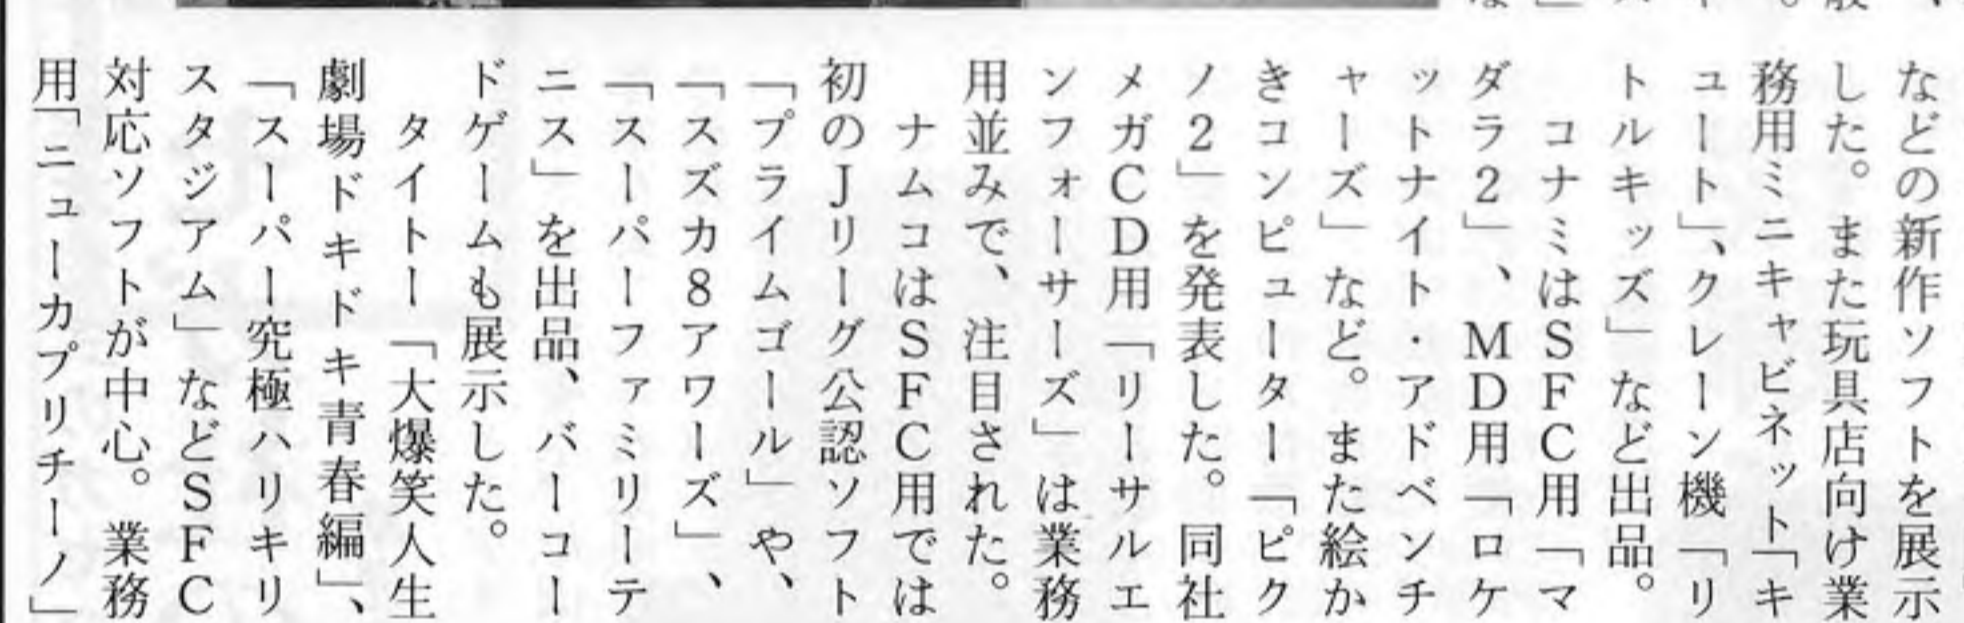 などの新作ソフトを展示
した。また玩具店向け業
務用ミニキャビネット「キ
ュート」、クレーン機「リ
トルキッズ」など出品。
コナミはSFC用「マ
ダラ2」、MD用「ロケ
ットナイト・アドベンチ
ャーズ」など。また絵か
きコンピューター「ピク
ノ2」を発表した。同社
メガCD用「リーサルエ
ンフォーサーズ」は業務
用並みで、注目された。
ナムコはSFC用では
初のJリーグ公認ソフト
「プライムゴール」や、
「スズカ8アワーズ」、
「スーパーファミリーテ
ニス」を出品、バーコー
ドゲームも展示した。
タイトー「大爆笑人生
劇場ドキドキ青春編」、
「スーパー究極ハリキリ
スタジアム」などSFC
対応ソフトが中心。業務
用「ニューカプリチーノ」